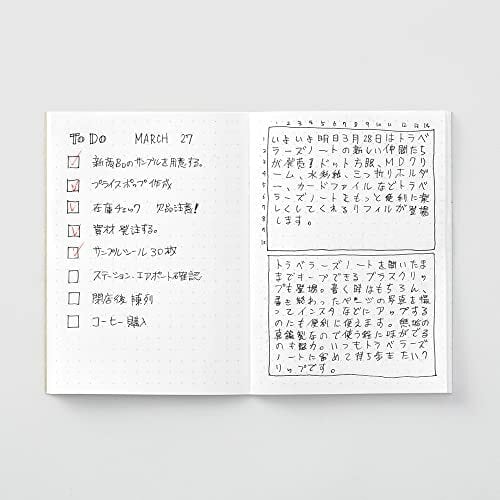 TO DO MARCH 27
新商品のサンプルを用意する。
プライスポップ作成
在庫チェック 欠品注意!
資材 発注する。
サンプルシール 30枚
ステーション、エアポート確認
閉店後 陳列
コーヒー購入
1 2 3 4 5 6 7 8 9 10 11 12 13 14
1 いよいよ明日3月28日はトラベ
2 ラーズノートの新しい仲間たち
3 が発売!ドット方眼、MDクリ
4 ーム、水彩紙、三つ折りホルダ
5 ー、カードファイルなどトラベ
6 ラーズノートをもっと便利に楽
7 しくしてくれるリフィルが登場
8 します。
9
10
トラベラーズノートを開いたま
まキープできるブラスクリッ
プも登場。書く時はもちろん、
書き終わったページの写真を撮
ってインスタなどにアップする
のにも便利に使えます。無垢の
真鍮製なので使う程に味がでる
のも魅力。いつもトラベラーズ
ノートに留めて持ち歩きたいク
リップです。